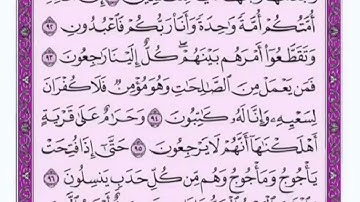 أُمَّتُكُمْ أُمَّةً وَاحِدَةً وَأَنَا رَبُّكُمْ فَاعْبُدُونِ ٩٢
وَتَقَطَّعُوا أَمْرَهُم بَيْنَهُمْ ۖ كُلٌّ إِلَيْنَا رَاجِعُونَ ٩٣
فَمَن يَعْمَلْ مِنَ الصَّالِحَاتِ وَهُوَ مُؤْمِنٌ فَلَا كُفْرَانَ
لِسَعْيِهِ وَإِنَّا لَهُ كَاتِبُونَ ٩٤ وَحَرَامٌ عَلَىٰ قَرْيَةٍ
أَهْلَكْنَاهَا أَنَّهُمْ لَا يَرْجِعُونَ ٩٥ حَتَّىٰ إِذَا فُتِحَتْ
يَأْجُوجُ وَمَأْجُوجُ وَهُم مِّن كُلِّ حَدَبٍ يَنسِلُونَ ٩٦